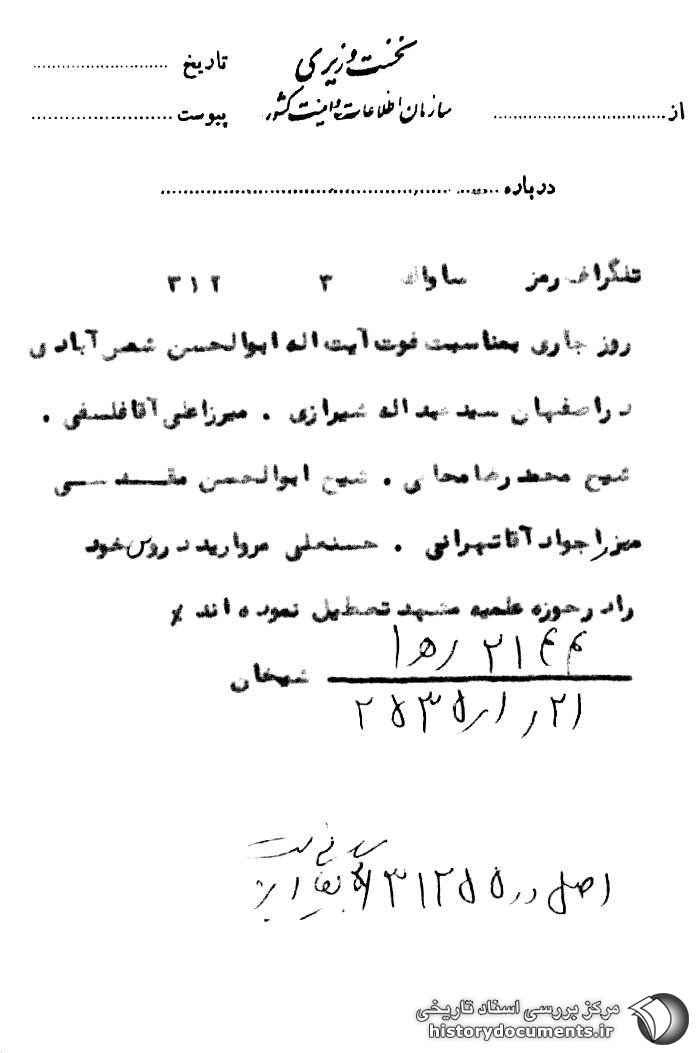 نخست وزیری
تاریخ
سازمان اطلاعات و امنیت کشور
از
پیوست
درباره
تلگراف رمز ساواک ۳ ۳۱۲
روز جاری بمناسبت فوت آیت اله ابوالحسن شمس آبادی
در اصفهان سید عبداله شیرازی . میرزاعلی آقا فلسفی .
شیخ محمد رضا محامی . شیخ ابوالحسن مقدسی
میرزا جواد آقا تهرانی . حسنعلی مروارید دروس خود
را در حوزه علمیه مشهد تعطیل نموده اند
شیخان
۲۱ ر ۱ ر ۲۵۳۵
اصل در
مرکز بررسی اسناد تاریخی
historydocuments.ir